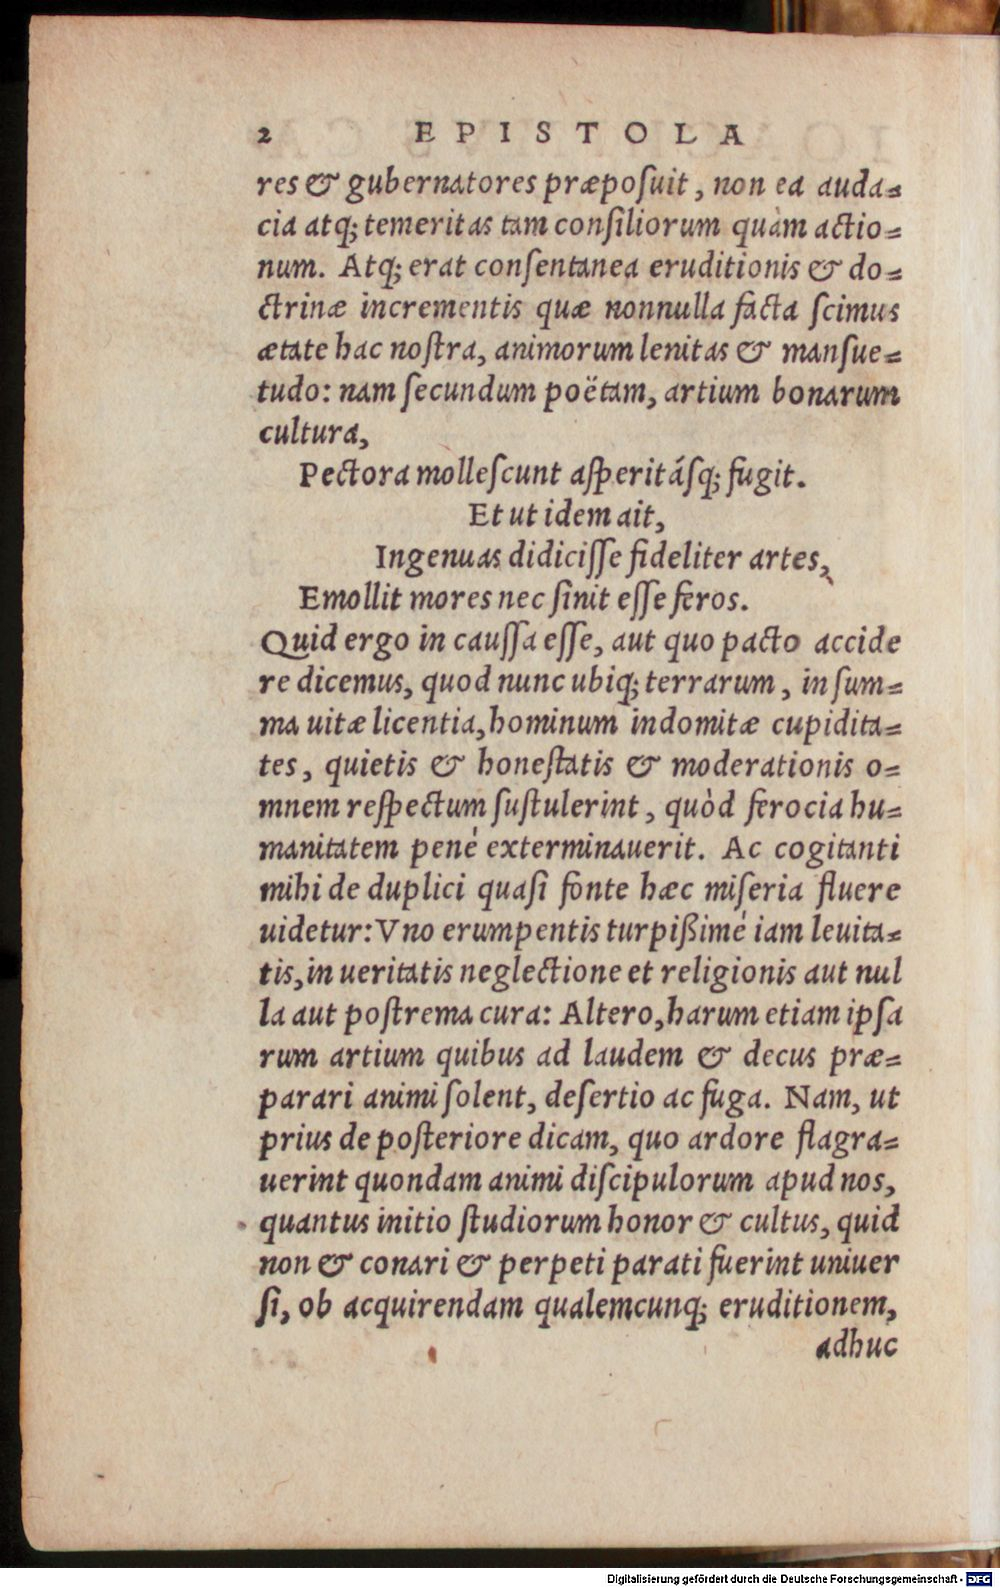 2 EPISTOLA
res & gubernatores præposuit, non ea auda-
cia atq; temeritas tam consiliorum quàm actio-
num. Atq; erat consentanea eruditionis & do-
ctrinæ incrementis quæ nonnulla facta scimus
ætate hac nostra, animorum lenitas & mansue-
tudo: nam secundum poëtam, artium bonarum
cultura,
Pectora mollescunt asperitásq; fugit.
Et ut idem ait,
Ingenuas didicisse fideliter artes,
Emollit mores nec sinit esse feros.
Quid ergo in caussa esse, aut quo pacto accide
re dicemus, quod nunc ubiq; terrarum, in sum-
ma uitæ licentia, hominum indomitæ cupidita-
tes, quietis & honestatis & moderationis o-
mnem respectum sustulerint, quòd ferocia hu-
manitatem pené exterminauerit. Ac cogitanti
mihi de duplici quasi fonte hæc miseria fluere
uidetur: Vno erumpentis turpißimé iam leuita-
tis, in ueritatis neglectione et religionis aut nul
la aut postrema cura: Altero, harum etiam ipsa
rum artium quibus ad laudem & decus præ-
parari animi solent, desertio ac fuga. Nam, ut
prius de posteriore dicam, quo ardore flagra-
uerint quondam animi discipulorum apud nos,
quantus initio studiorum honor & cultus, quid
non & conari & perpeti parati fuerint uniuer
si, ob acquirendam qualemcunq; eruditionem,
adhuc
Digitalisierung gefördert durch die Deutsche Forschungsgemeinschaft - DFG